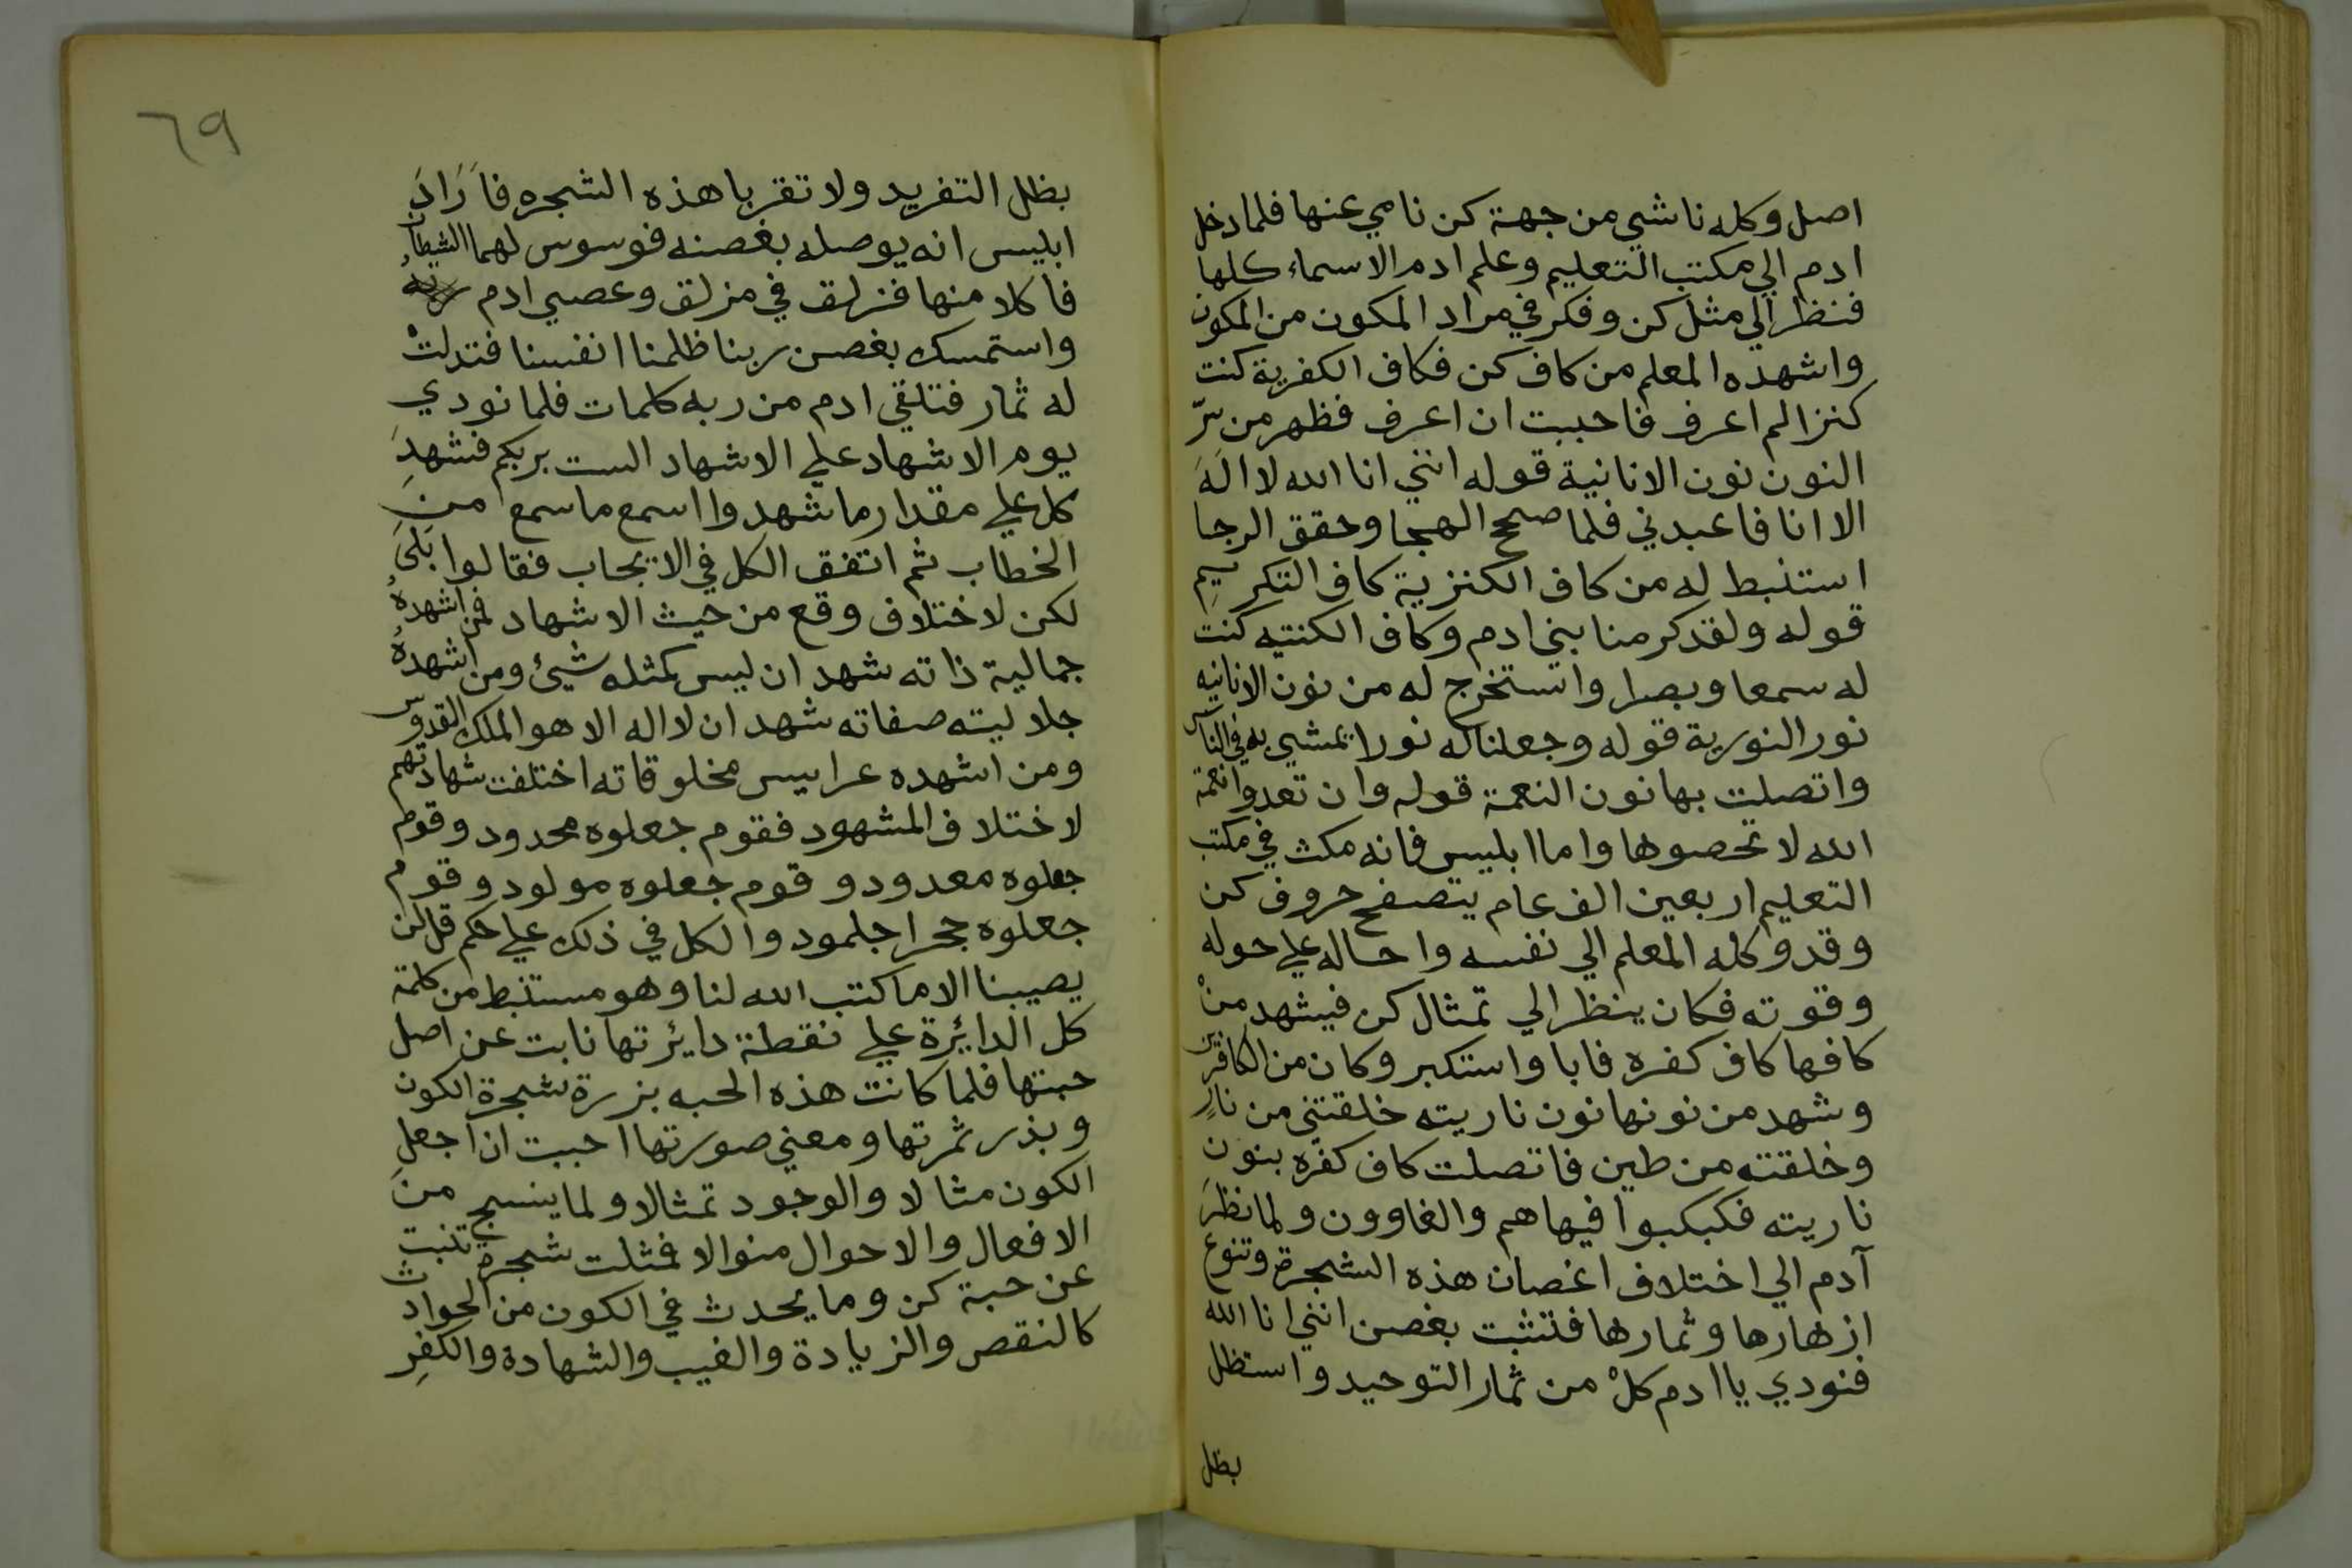 اصل وكله ناشي من جهة كن نامي عنها فلما دخل
ادم الي مكتب التعليم وعلم ادم الاسماء كلها
فنظر الي مثل كن وفكر في مراد المكون من المكون
واشهده المعلم من كاف كن فكاف الكفرية كنت
كنزا لم اعرف فاحببت ان اعرف فظهر من سرّ
النون نون الانانية قوله انني انا الله لا الَهَ
الا انا فاعبدني فلما صحح الهجا وحقق الرجا
استنبط له من كاف الكنزية كاف التكريمِ
قوله ولقد كرمنا بني ادم وكاف الكنتيه كنت
له سمعا وبصرا واستخرج له من نون الانانيه
نور النورية قوله وجعلنا له نورا يمشي به في الناس
واتصلت بها نون النعمة قوله وان تعدوا نعمة
الله لا تحصوها واما ابليس فانه مكث في مكتب
التعليم اربعين الف عام يتصفح حروف كن
وقد وكله المعلم الي نفسه واحاله علي حوله
وقوته فكان ينظر الي تمثال كن فيشهد منْ
كافها كاف كفره فابا واستكبر وكان من الكافرين
وشهد من نونها نون ناريته خلقتني من نارٍ
وخلقته من طين فاتصلت كاف كفره بنون
ناريته فكبكبوا فيها هم والغاوون ولما نظرَ
آدم الي اختلاف اغصان هذه الشجرة وتنوع
ازهارها وثمارها فتثبت بغصن انني انا الله
فنودي يا ادم كلْ من ثمار التوحيد واستظل
بظل
٦٩
بظل التفريد ولا تقربا هذه الشجره فاَرَادَ
ابليس انه يوصله بغصنه فوسوس لهما الشيطان
فاكلا منها فزلق في مزلق وعصي ادم ربهُ
واستمسك بغصن ربنا ظلمنا انفسنا فتدلتْ
له ثمار فتلقي ادم من ربه كلمات فلما نودي
يوم الاشهاد علي الاشهاد الست بربكم فشهدَ
كل علي مقدار ما شهد وا اسمع ما سمع منِ
الخطاب ثم اتفق الكل في الايجاب فقالوا بَلَي
لكن لاختلاف وقع من حيث الاشهاد فمن اشهدهُ
جمالية ذاته شهد ان ليس كمثله شيئ ومن اشهدهُ
جلاليته صفاته شهد ان لا اله الا هو الملك القدوس
ومن اشهده عرايس مخلوقاته اختلفت شهادتهم
لاختلاف المشهود فقوم جعلوه محدود وقوم
جعلوه معدود وقوم جعلوه مولود وقوم
جعلوه حجرا جلمود والكل في ذلك علي حكم قل لن
يصيبنا الا ما كتب الله لنا وهو مستنبط من كلمة
كل الدايرة علي نقطة دايرتها نابت عن اصل
حبتها فلما كانت هذه الحبه بزرة شجرة الكون
وبذر ثمرتها ومعني صورتها احببت ان اجعلِ
الكون مثالا والوجود تمثالا ولما ينسج منَ
الافعال والاحوال منوالا فمثلت شجرة تنبت
عن حبة كن وما يحدث في الكون من الحوادث
كالنقص والزيادة والغيب والشهادة والكفرِ